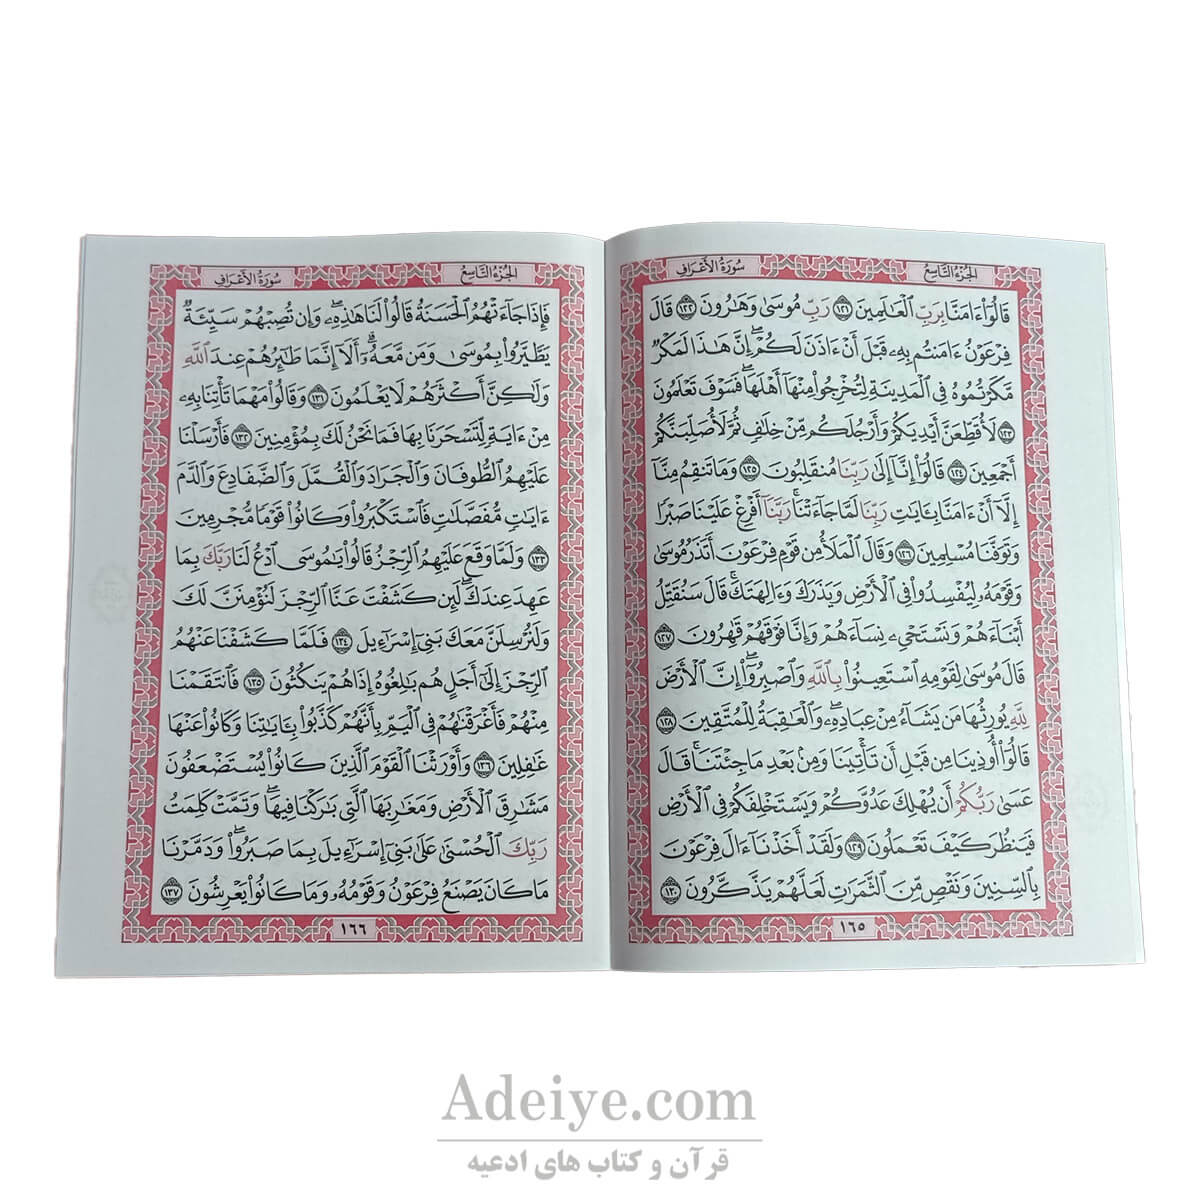 الجُزءُ التَّاسِعُ
سُورَةُ الأَعۡرَافِ
قَالُوٓاْ ءَامَنَّا بِرَبِّ ٱلۡعَٰلَمِينَ ١٢١ رَبِّ مُوسَىٰ وَهَٰرُونَ ١٢٢ قَالَ
فِرۡعَوۡنُ ءَامَنتُم بِهِۦ قَبۡلَ أَنۡ ءَاذَنَ لَكُمۡۖ إِنَّ هَٰذَا لَمَكۡرٞ
مَّكَرۡتُمُوهُ فِي ٱلۡمَدِينَةِ لِتُخۡرِجُواْ مِنۡهَآ أَهۡلَهَاۖ فَسَوۡفَ تَعۡلَمُونَ
١٢٣ لَأُقَطِّعَنَّ أَيۡدِيَكُمۡ وَأَرۡجُلَكُم مِّنۡ خِلَٰفٖ ثُمَّ لَأُصَلِّبَنَّكُمۡ
أَجۡمَعِينَ ١٢٤ قَالُوٓاْ إِنَّآ إِلَىٰ رَبِّنَا مُنقَلِبُونَ ١٢٥ وَمَا تَنقِمُ مِنَّآ
إِلَّآ أَنۡ ءَامَنَّا بِـَٔايَٰتِ رَبِّنَا لَمَّا جَآءَتۡنَاۚ رَبَّنَآ أَفۡرِغۡ عَلَيۡنَا صَبۡرٗا
وَتَوَفَّنَا مُسۡلِمِينَ ١٢٦ وَقَالَ ٱلۡمَلَأُ مِن قَوۡمِ فِرۡعَوۡنَ أَتَذَرُ مُوسَىٰ
وَقَوۡمَهُۥ لِيُفۡسِدُواْ فِي ٱلۡأَرۡضِ وَيَذَرَكَ وَءَالِهَتَكَۚ قَالَ سَنُقَتِّلُ
أَبۡنَآءَهُمۡ وَنَسۡتَحۡيِۦ نِسَآءَهُمۡ وَإِنَّا فَوۡقَهُمۡ قَٰهِرُونَ ١٢٧
قَالَ مُوسَىٰ لِقَوۡمِهِ ٱسۡتَعِينُواْ بِٱللَّهِ وَٱصۡبِرُوٓاْۖ إِنَّ ٱلۡأَرۡضَ
لِلَّهِ يُورِثُهَا مَن يَشَآءُ مِنۡ عِبَادِهِۦۖ وَٱلۡعَٰقِبَةُ لِلۡمُتَّقِينَ ١٢٨
قَالُوٓاْ أُوذِينَا مِن قَبۡلِ أَن تَأۡتِيَنَا وَمِنۢ بَعۡدِ مَا جِئۡتَنَاۚ قَالَ
عَسَىٰ رَبُّكُمۡ أَن يُهۡلِكَ عَدُوَّكُمۡ وَيَسۡتَخۡلِفَكُمۡ فِي ٱلۡأَرۡضِ
فَيَنظُرَ كَيۡفَ تَعۡمَلُونَ ١٢٩ وَلَقَدۡ أَخَذۡنَآ ءَالَ فِرۡعَوۡنَ
بِٱلسِّنِينَ وَنَقۡصٖ مِّنَ ٱلثَّمَرَٰتِ لَعَلَّهُمۡ يَذَّكَّرُونَ ١٣٠
١٦٥
الجُزءُ التَّاسِعُ
سُورَةُ الأَعۡرَافِ
فَإِذَا جَآءَتۡهُمُ ٱلۡحَسَنَةُ قَالُواْ لَنَا هَٰذِهِۦۖ وَإِن تُصِبۡهُمۡ سَيِّئَةٞ
يَطَّيَّرُواْ بِمُوسَىٰ وَمَن مَّعَهُۥٓۗ أَلَآ إِنَّمَا طَٰٓئِرُهُمۡ عِندَ ٱللَّهِ
وَلَٰكِنَّ أَكۡثَرَهُمۡ لَا يَعۡلَمُونَ ١٣١ وَقَالُواْ مَهۡمَا تَأۡتِنَا بِهِۦ
مِنۡ ءَايَةٖ لِّتَسۡحَرَنَا بِهَا فَمَا نَحۡنُ لَكَ بِمُؤۡمِنِينَ ١٣٢ فَأَرۡسَلۡنَا
عَلَيۡهِمُ ٱلطُّوفَانَ وَٱلۡجَرَادَ وَٱلۡقُمَّلَ وَٱلضَّفَادِعَ وَٱلدَّمَ
ءَايَٰتٖ مُّفَصَّلَٰتٖ فَٱسۡتَكۡبَرُواْ وَكَانُواْ قَوۡمٗا مُّجۡرِمِينَ
١٣٣ وَلَمَّا وَقَعَ عَلَيۡهِمُ ٱلرِّجۡزُ قَالُواْ يَٰمُوسَى ٱدۡعُ لَنَا رَبَّكَ بِمَا
عَهِدَ عِندَكَۖ لَئِن كَشَفۡتَ عَنَّا ٱلرِّجۡزَ لَنُؤۡمِنَنَّ لَكَ
وَلَنُرۡسِلَنَّ مَعَكَ بَنِيٓ إِسۡرَٰٓءِيلَ ١٣٤ فَلَمَّا كَشَفۡنَا عَنۡهُمُ
ٱلرِّجۡزَ إِلَىٰٓ أَجَلٍ هُم بَٰلِغُوهُ إِذَا هُمۡ يَنكُثُونَ ١٣٥ فَٱنتَقَمۡنَا
مِنۡهُمۡ فَأَغۡرَقۡنَٰهُمۡ فِي ٱلۡيَمِّ بِأَنَّهُمۡ كَذَّبُواْ بِـَٔايَٰتِنَا وَكَانُواْ عَنۡهَا
غَٰفِلِينَ ١٣٦ وَأَوۡرَثۡنَا ٱلۡقَوۡمَ ٱلَّذِينَ كَانُواْ يُسۡتَضۡعَفُونَ
مَشَٰرِقَ ٱلۡأَرۡضِ وَمَغَٰرِبَهَا ٱلَّتِي بَٰرَكۡنَا فِيهَاۖ وَتَمَّتۡ كَلِمَتُ
رَبِّكَ ٱلۡحُسۡنَىٰ عَلَىٰ بَنِيٓ إِسۡرَٰٓءِيلَ بِمَا صَبَرُواْۖ وَدَمَّرۡنَا
مَا كَانَ يَصۡنَعُ فِرۡعَوۡنُ وَقَوۡمُهُۥ وَمَا كَانُواْ يَعۡرِشُونَ ١٣٧
١٦٦
Adeiye.com
قرآن و کتاب های ادعیه